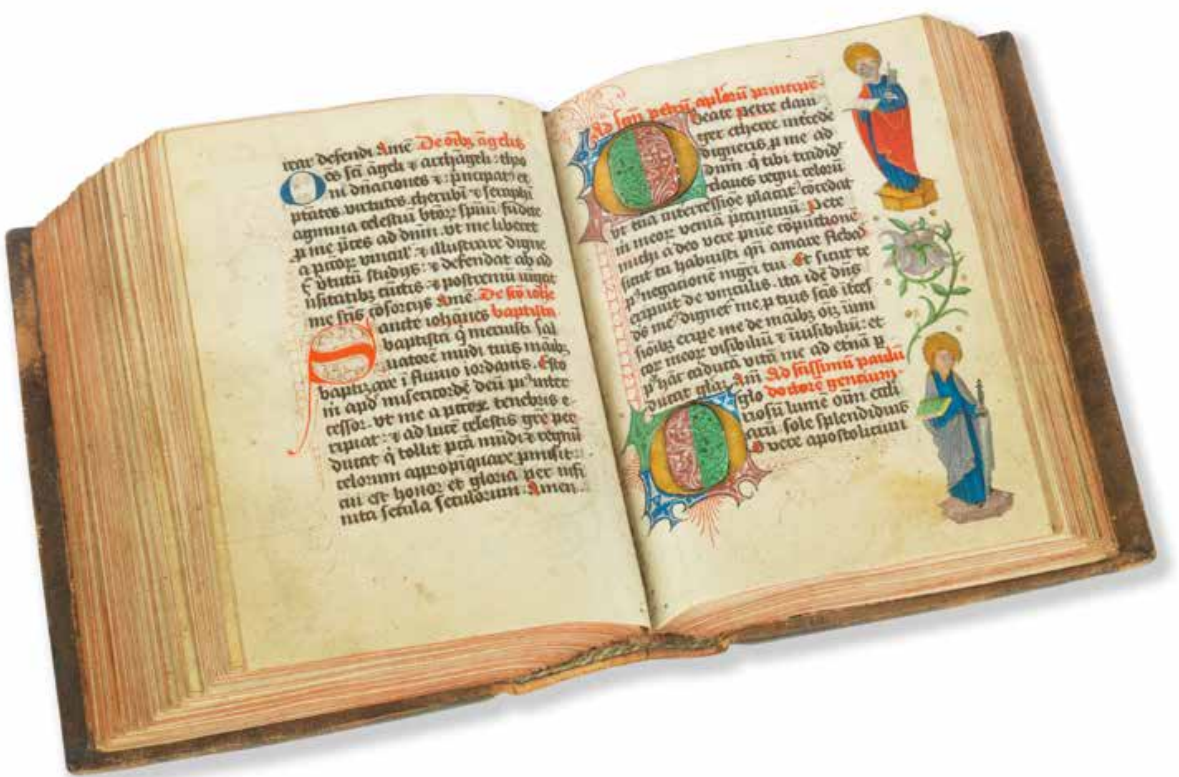 tear defendi Amē De oībꝫ āgelis
Oēs sci āgeli ⁊ archāgeli: thro
ni dn̄aciones ⁊: pͥncipatꝰ et
ptātes virtutes cherubī ⁊ seraphī
agmina celestiū btōꝝ spūū fūdete
ꝓ me p̄ces ad dn̄m. vt me liberet
a pctōꝝ vincul' ⁊ illustrare digneꞇ
ꝟtutū studijs: ⁊ defendat ab ad
ūsitatibꝫ cūctis ⁊ postremū iūgat
me scis cōsortijs Amē. De scō iohē
baptista
Sancte iohānes
baptista q̄ meruisti sal
uatorē mūdi tuis māibꝫ
baptizare ī fluuio iordanis. Esto
m apd' misericordē deū pꝰ inter
cessor. vt me a pctōꝝ tenebris e
ripiat: ⁊ ad lucē celestis grē per
ducat q̄ tollit pctā mūdi ⁊ regnū
celorum apropīquare ꝓmisit:
cui est honor et gloria per infi
nita secula seculorum. Amen
Ad scm̄ petrū aplōrū principē.
O beate petre claui
ger etheree intercede
digneris ꝓ me ad
dnm q̄ tibi tradidͭ
claues regni celorū
vt tua intercessiōe placatꝰ cōcedat
m meoꝝ veniā pctm̄inū: Dete
michi a deo vere pn̄ie cōpūctionē
sicut tu habuisti qn̄ amare flebas
pꝰ negacionē mgri tui Et sicut te
eripuit de vinculis. ita idē dn̄s
ds me digneꞇ me. ꝑ tuas scās ītces
siōes eripe me de māibꝫ oīꝫ ūim
coꝝ meoꝝ visibiliū ⁊ īuisibiliū: et
pꝰ hāc caducā vitā me ad etnā ꝑ
ducat glaꝫ Am̄ Ad scissimū paulū
doctorē gentium.
O glo
riosū lumē oīm eccli
arū sole splendidius
O vere apostolicum